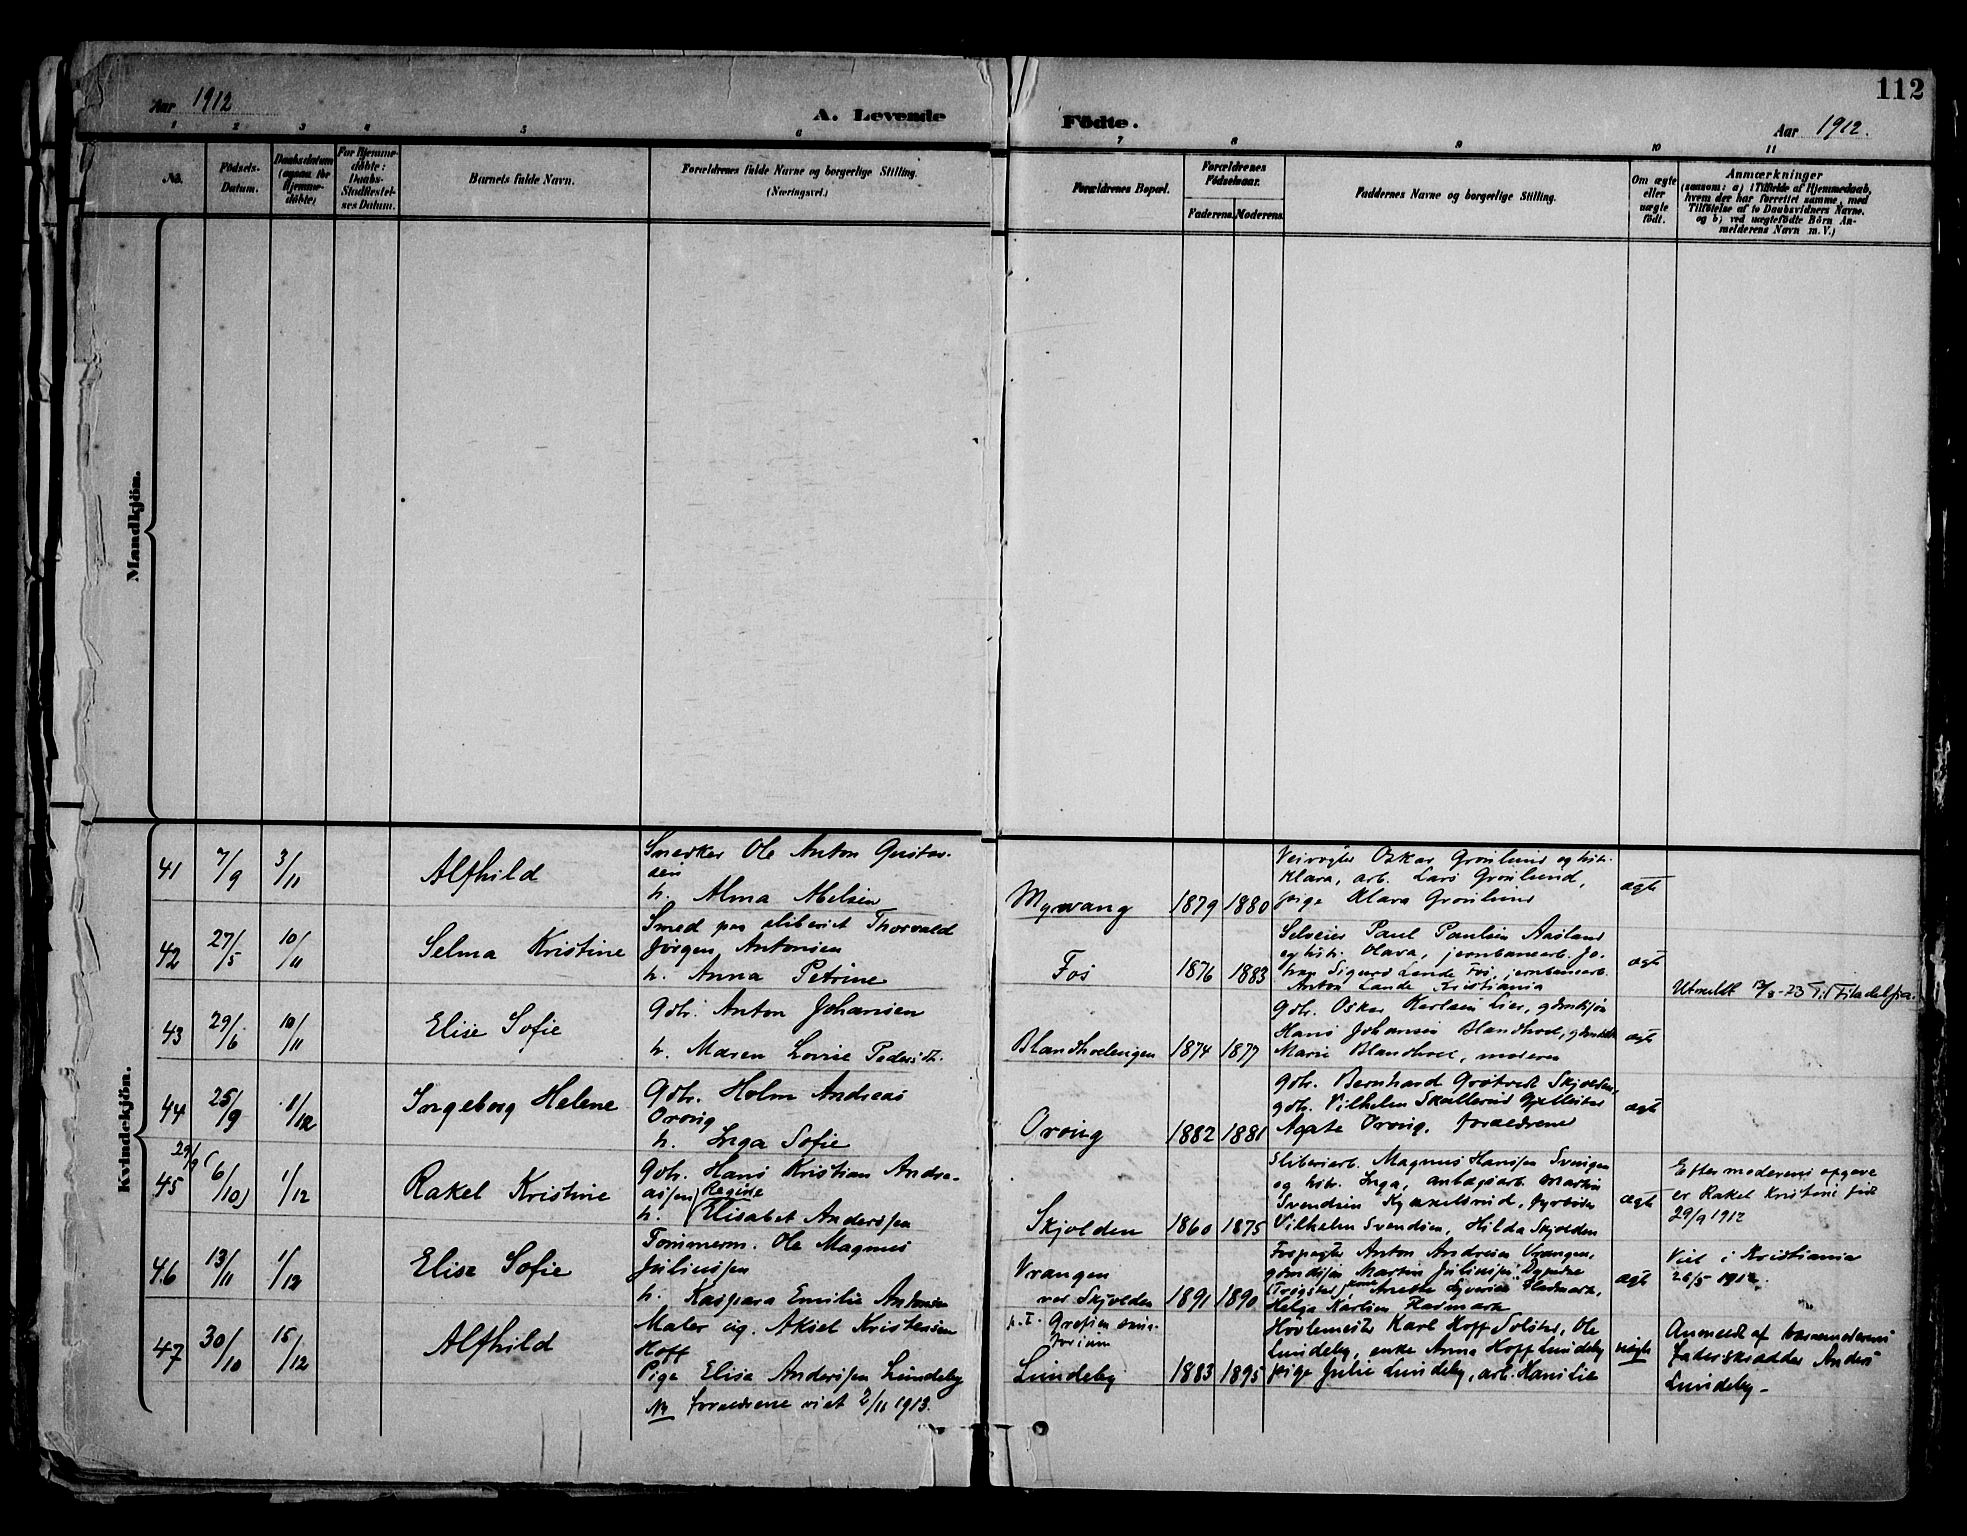 112
Aar 1912
A. Levende
Födte.
Aar 1912.
1 2 3 4 5 6
7 8 9 10 11
No.
Födsels-
Datum.
Daabsdatum
(ogsaa for
Hjemme-
döbte)
For Hjemme-
döbte:
Daabs-
Stadfæstel-
ses Datum.
Barnets fulde Navn.
Forældrenes fulde Navne og borgerlige Stilling.
(Næringsvei.)
Forældrenes Bopæl.
Forældrenes
Födselsaar.
Faderens. Moderens.
Faddernes Navne og borgerlige Stilling.
Om ægte
eller
uægte
födt.
Anmærkninger
(saasom: a) i Tilfælde af Hjemmedaab,
hvem der har forrettet samme, med
Tilföielse af to Daabsvidners Navne.
og b) ved uægtefödte Börn An-
melderens Navn m. V.)
Mandkjön.
Kvindekjön.
41
7/9
3/11
Alfhild
Snedker Ole Anton Gustav-
sen
h. Alma Abelsen
Myrvang
1879
1880
Veivogter Oskar Grønlund og hstr.
Klara, arb. Lars Grønlund,
pige Klara Grønlund
ægte
42
27/5
10/11
Selma Kristine
Smed paa sliberiet Thorvald
Jørgen Antonsen
h. Anna Petrine
Fos
1876
1883
Selveier Paul Paulsen Aasland
og hstr. Olava, jernbanearb. Jo-
han Sigurd Lande Fos, jernbanearb.
Anton Lande Kristiania
ægte
Utmeldt 13/3-23 Til Filadelfia.
43
29/6
10/11
Elise Sofie
Gdbr. Anton Johansen
h. Maren Lovise Pedersdtr.
Blandhoelengen
1874
1877
Gdbr. Oskar Karlsen Lier, gdmdsøn
Hans Johansen Blandhoel,
Marie Blandhoel, moderen
ægte
44
25/9
1/12
Ingeborg Helene
Gdbr. Holm Andreas
Orvig
h. Inga Sofie
Orvig
1882
1881
Gdbr. Bernhard Grøtvedt Skjolden,
gdbr. Vilhelm Skallerud
Agate Orvig, forældrene
ægte
45
29/9 (6/10)
1/12
Rakel Kristine
Gdbr. Hans Kristian Andre-
assen Regine
h. Elisabet Anderssen
Skjolden
1860
1875
Sliberiarb. Magnus Hanssen Svingen
og hstr. Inga, anlægsarb. Martin
Svendsen
Vilhelm Svendsen, Hilda Skjolden
ægte
Efter moderens opgave
er Rakel Kristine født
29/9 1912
46
13/11
1/12
Elise Sofie
Tømmerm. Ole Magnus
Juliussen
h. Kaspara Emilie Andersen
Vrangen
ved Skjolden
1891
1890
Anton Andresen Vrangen,
gdmdsøn Martin Juliussen
(Trøgstad)
Helga Karlsen Flatmark
ægte
Viet i Kristiania
26/5 1912.
47
30/10
15/12
Alfhild
Maler ug. Aksel Kristensen
Hoff
Pige Elise Anderssen Lundeby
NB forældrene viet 2/11 1913.
p.t. Grefsen sana-
torium
Lundeby
1883
1895
Høvlemester Karl Hoff Solstad, Ole
Lundeby, enke Anna Hoff Lundeby
pige Julie Lundeby, arb. Hans Lie
uægte
Anmeldt af barnemoderens
fader skrædder Anders
Lundeby